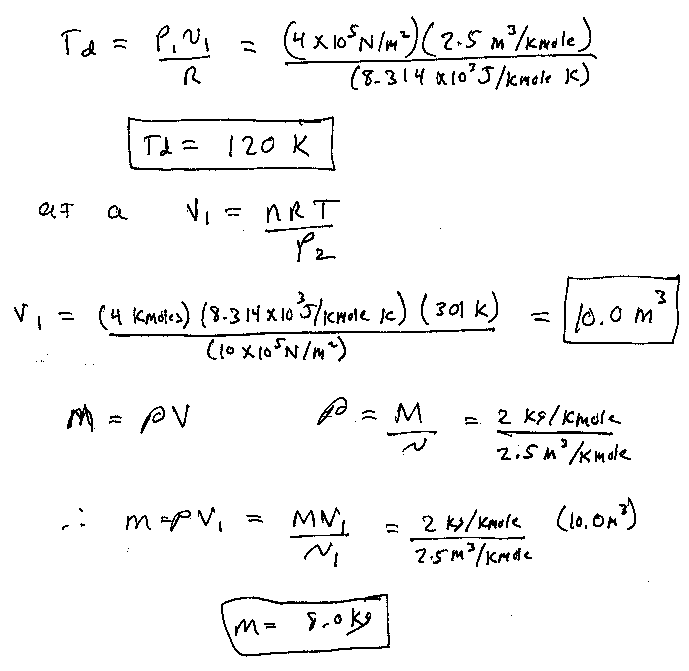 Td = P₁v₁/R = (4 x 10⁵ N/m²)(2.5 m³/kmole)/(8.314 x 10³ J/kmole K)
Td = 120 K
at a V₁ = nRT/P₂
V₁ = (4 kmoles)(8.314 x 10³ J/kmole K)(301 K)/(10 x 10⁵ N/m²) = 10.0 m³
m = ρV ρ = M/v = 2 kg/kmole/2.5 m³/kmole
∴ m = ρV₁ = MV₁/v₁ = 2 kg/kmole/2.5 m³/kmole (10.0 m³)
m = 8.0 kg